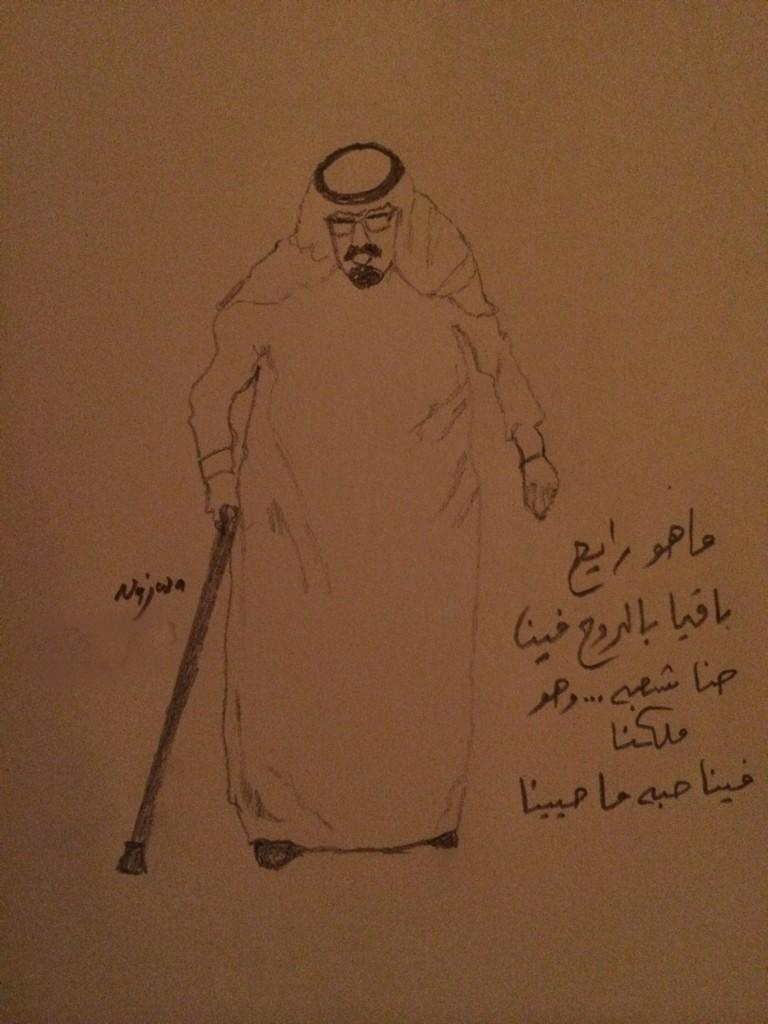 ماهو رايح
باقيا بالروح فينا
حنا شعبه...وهو
ملكنا
فينا حبه ما حيينا
Najwa